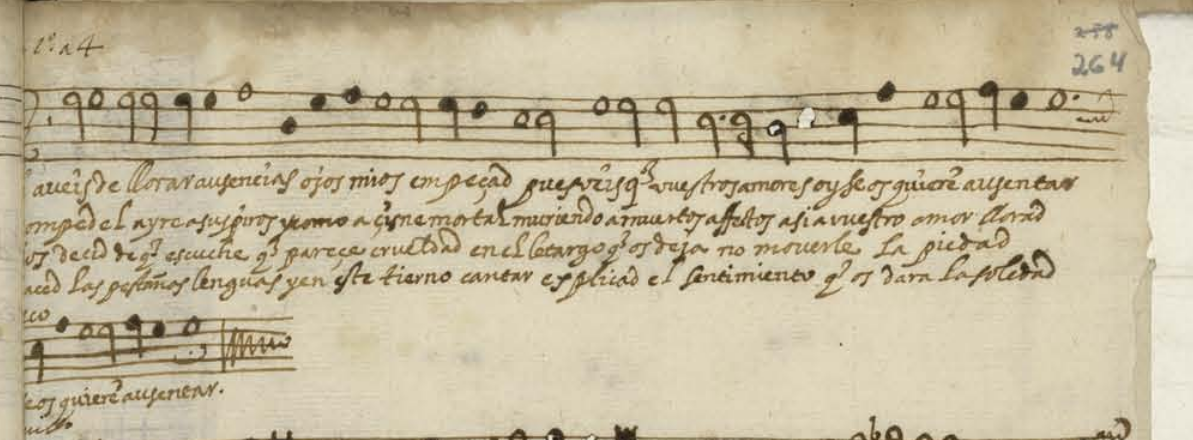 1º a 4
258
264
aueis de llorar ausencias ojos mios empeçad pues veis q̃ vuestros amores oy se os quierẽ ausentar
omped el ayre a suspiros y como a çisne mortal muriendo a muertos affectos asi a vuestro amor llorad
os decid de q̃ escuche q̃ pareçe crueldad en el letargo q̃ os deja no moverle la piedad
aced las pestañas lenguas y en este tierno cantar explicad el sentimiento q̃ os dara la soledad
eos quierẽ ausentar.